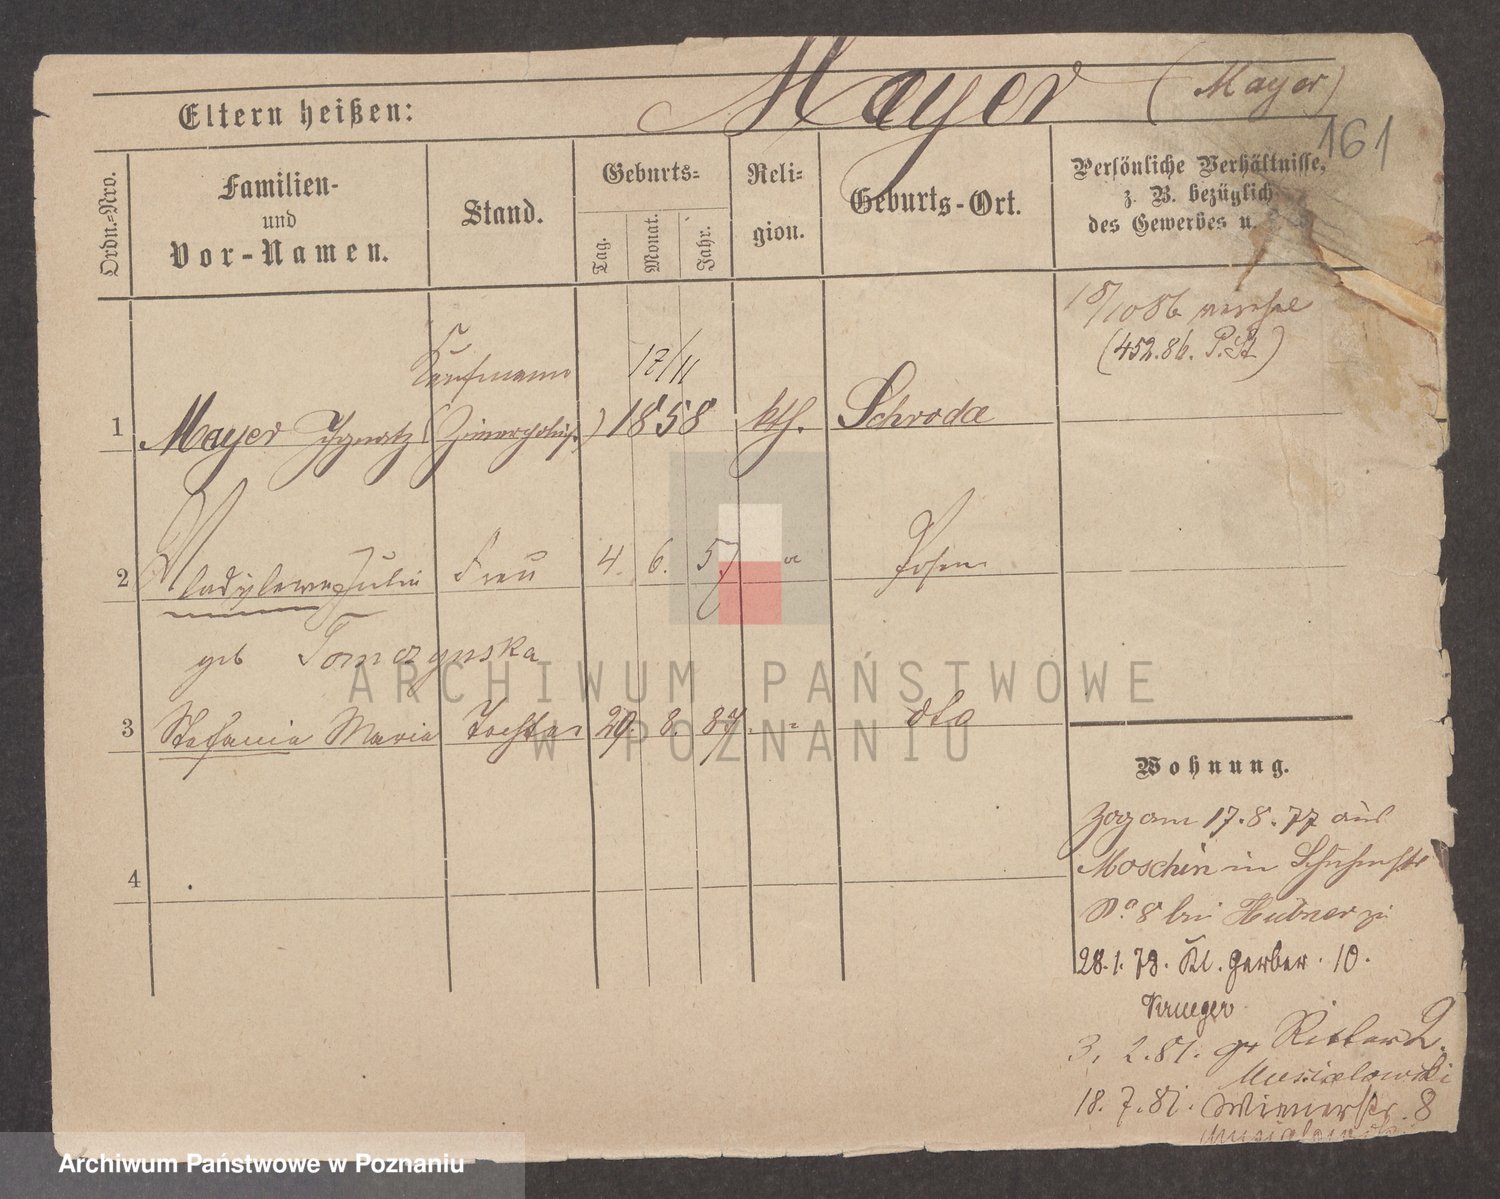 Eltern heißen: Mayer (Mayer)
161
Ordn.=Nro.
Familien-
und
Vor-Namen.
Stand.
Geburts=
Tag.
Monat.
Jahr.
Reli-
gion.
Geburts-Ort.
Persönliche Verhältnisse,
z. B. bezüglich
des Gewerbes u.
18/10 86
(452.86. P.R.)
Kaufmann
17/11
1 Mayer Ignatz 1858 kth. Schroda
2 Frau 4. 6. 57 " Posen
geb Tomczynska
3 Stefania Maria Tochter 29. 8. 87. " dto
4
Wohnung.
Zog am 17.8.77 aus
Moschin in
No 8 bei Hubner zu
28.1.78. Kl. Gerber. 10.
Krueger
3. 2.81. gr Ritter 2.
Musialowski
18. 7.81. Wienerstr. 8
Musialowski
ARCHIWUM PAŃSTWOWE
W POZNANIU
Archiwum Państwowe w Poznaniu